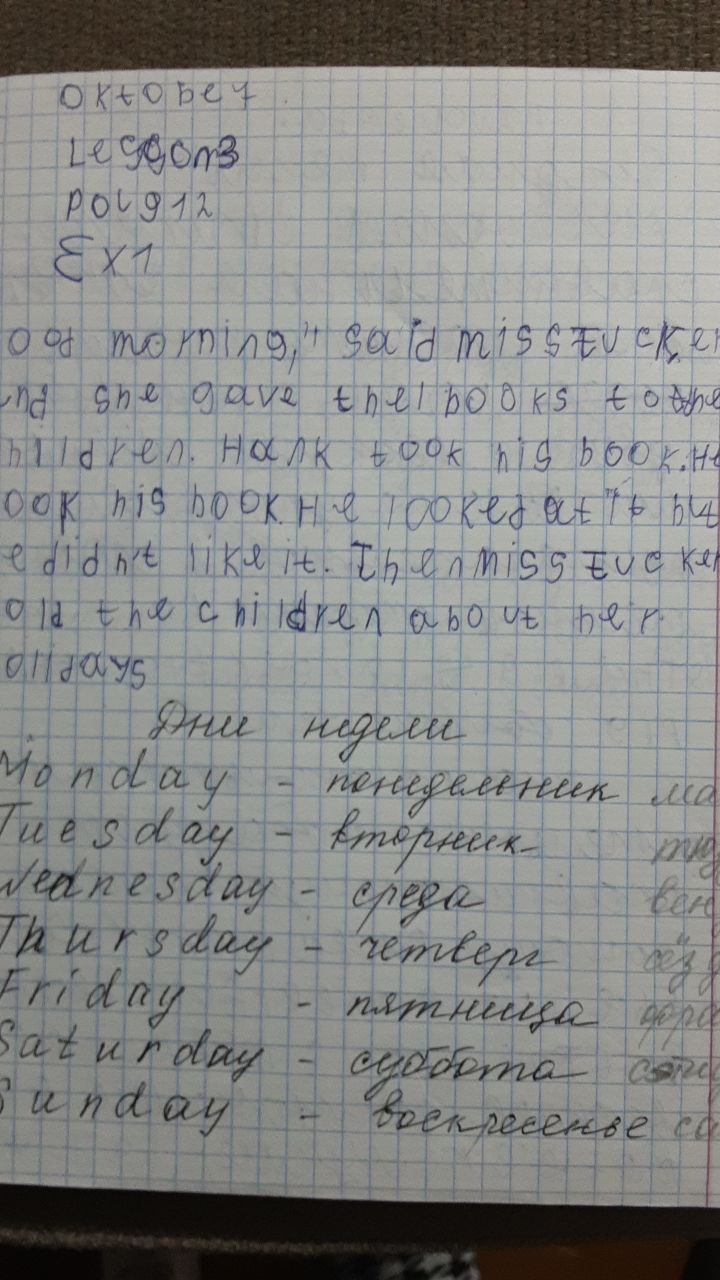 Oktober
Lesson3
Ex1
ood morning," said miss Tucker
she gave the books to the
hildren. Hank took his book. H
ook his book. He looked at it
e did n't like it. Then miss Tucker
old the children about her
ollidays
Дни недели
Monday - понедельник ма
Tuesday - вторник тю
Wednesday - среда вен
Thursday - четверг сёз
Friday - пятница фра
Saturday - суббота
Sunday - воскресенье са